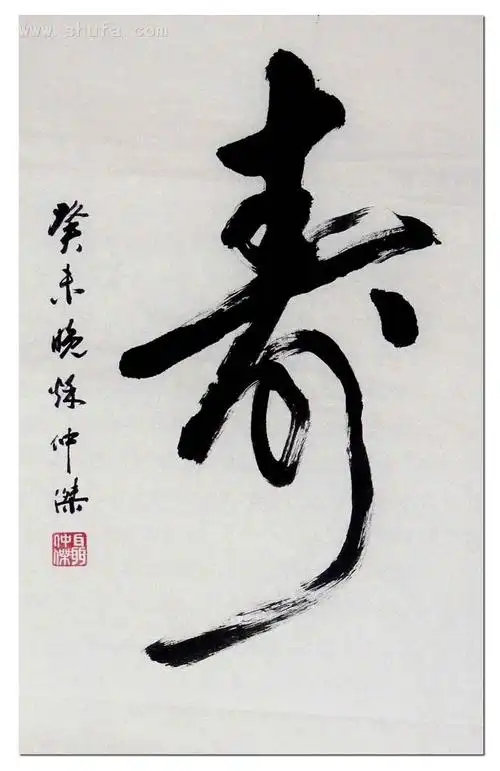 www.shufa.com
寿
癸未晚秌仲傑